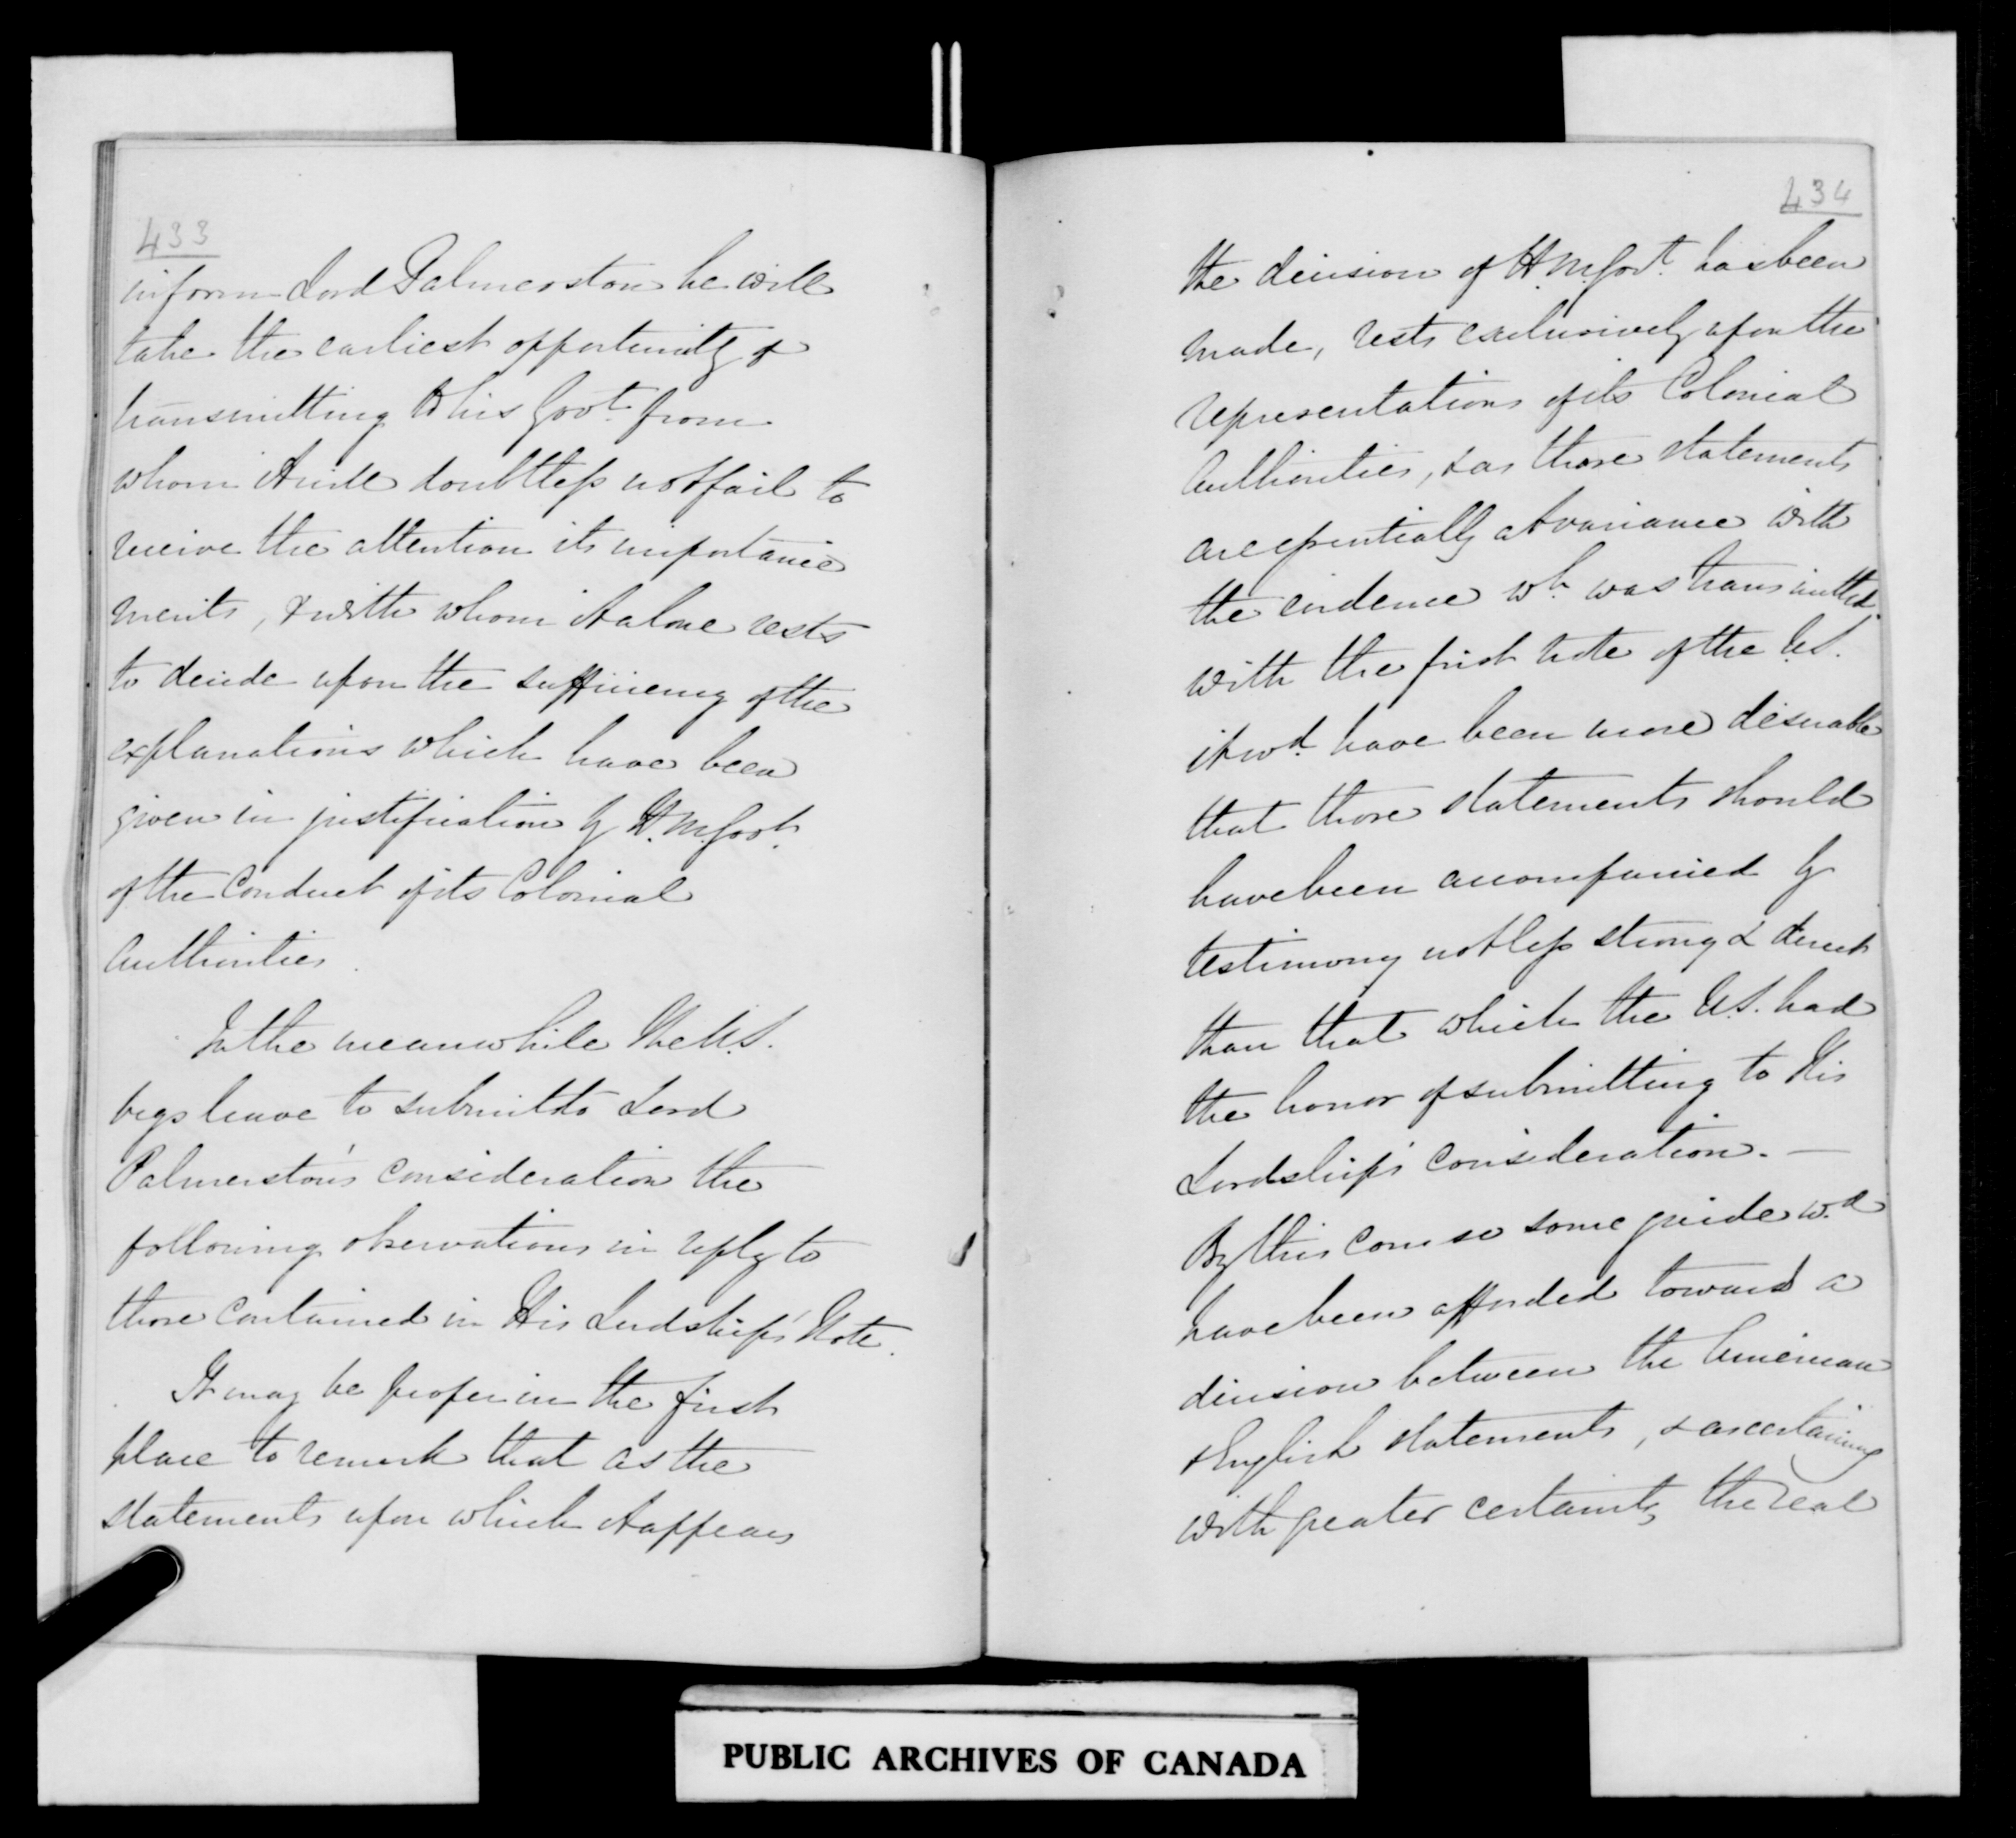 433
inform Lord Palmerston he will
take the earliest opportunity of
transmitting to his Govt. from
whom it will doubtless not fail to
receive the attention its importance
merits, & with whom it alone rests
to decide upon the sufficiency of the
explanations which have been
given in justification by H.M. Govt.
of the Conduct of its Colonial
Authorities.
In the meanwhile the U.S.
begs leave to submit to Lord
Palmerston's consideration the
following observations in reply to
those contained in His Lordship's Note.
It may be proper in the first
place to remark that as the
statements upon which it appears
434
the decision of H.M. Govt. has been
made, rests exclusively upon the
representations of its Colonial
Authorities, & as those statements
are essentially at variance with
the evidence wh. was transmitted
with the first Note of the U.S.
it wd. have been more desirable
that those statements should
have been accompanied by
testimony not less strong & direct
than that which the U.S. had
the honor of submitting to His
Lordship's consideration. —
By this course some guide wd.
have been afforded toward a
decision between the American
& English statements, & ascertaining
with greater certainty the real
PUBLIC ARCHIVES OF CANADA